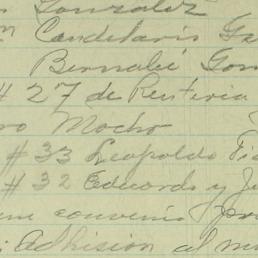 Gonzalez
Candelaris
Bernabé Gon
# 27 de Renteria
ro Mocho
# 33 Leopoldo
# 32 Eduardo y Ju
convenio pr
Adhision al m